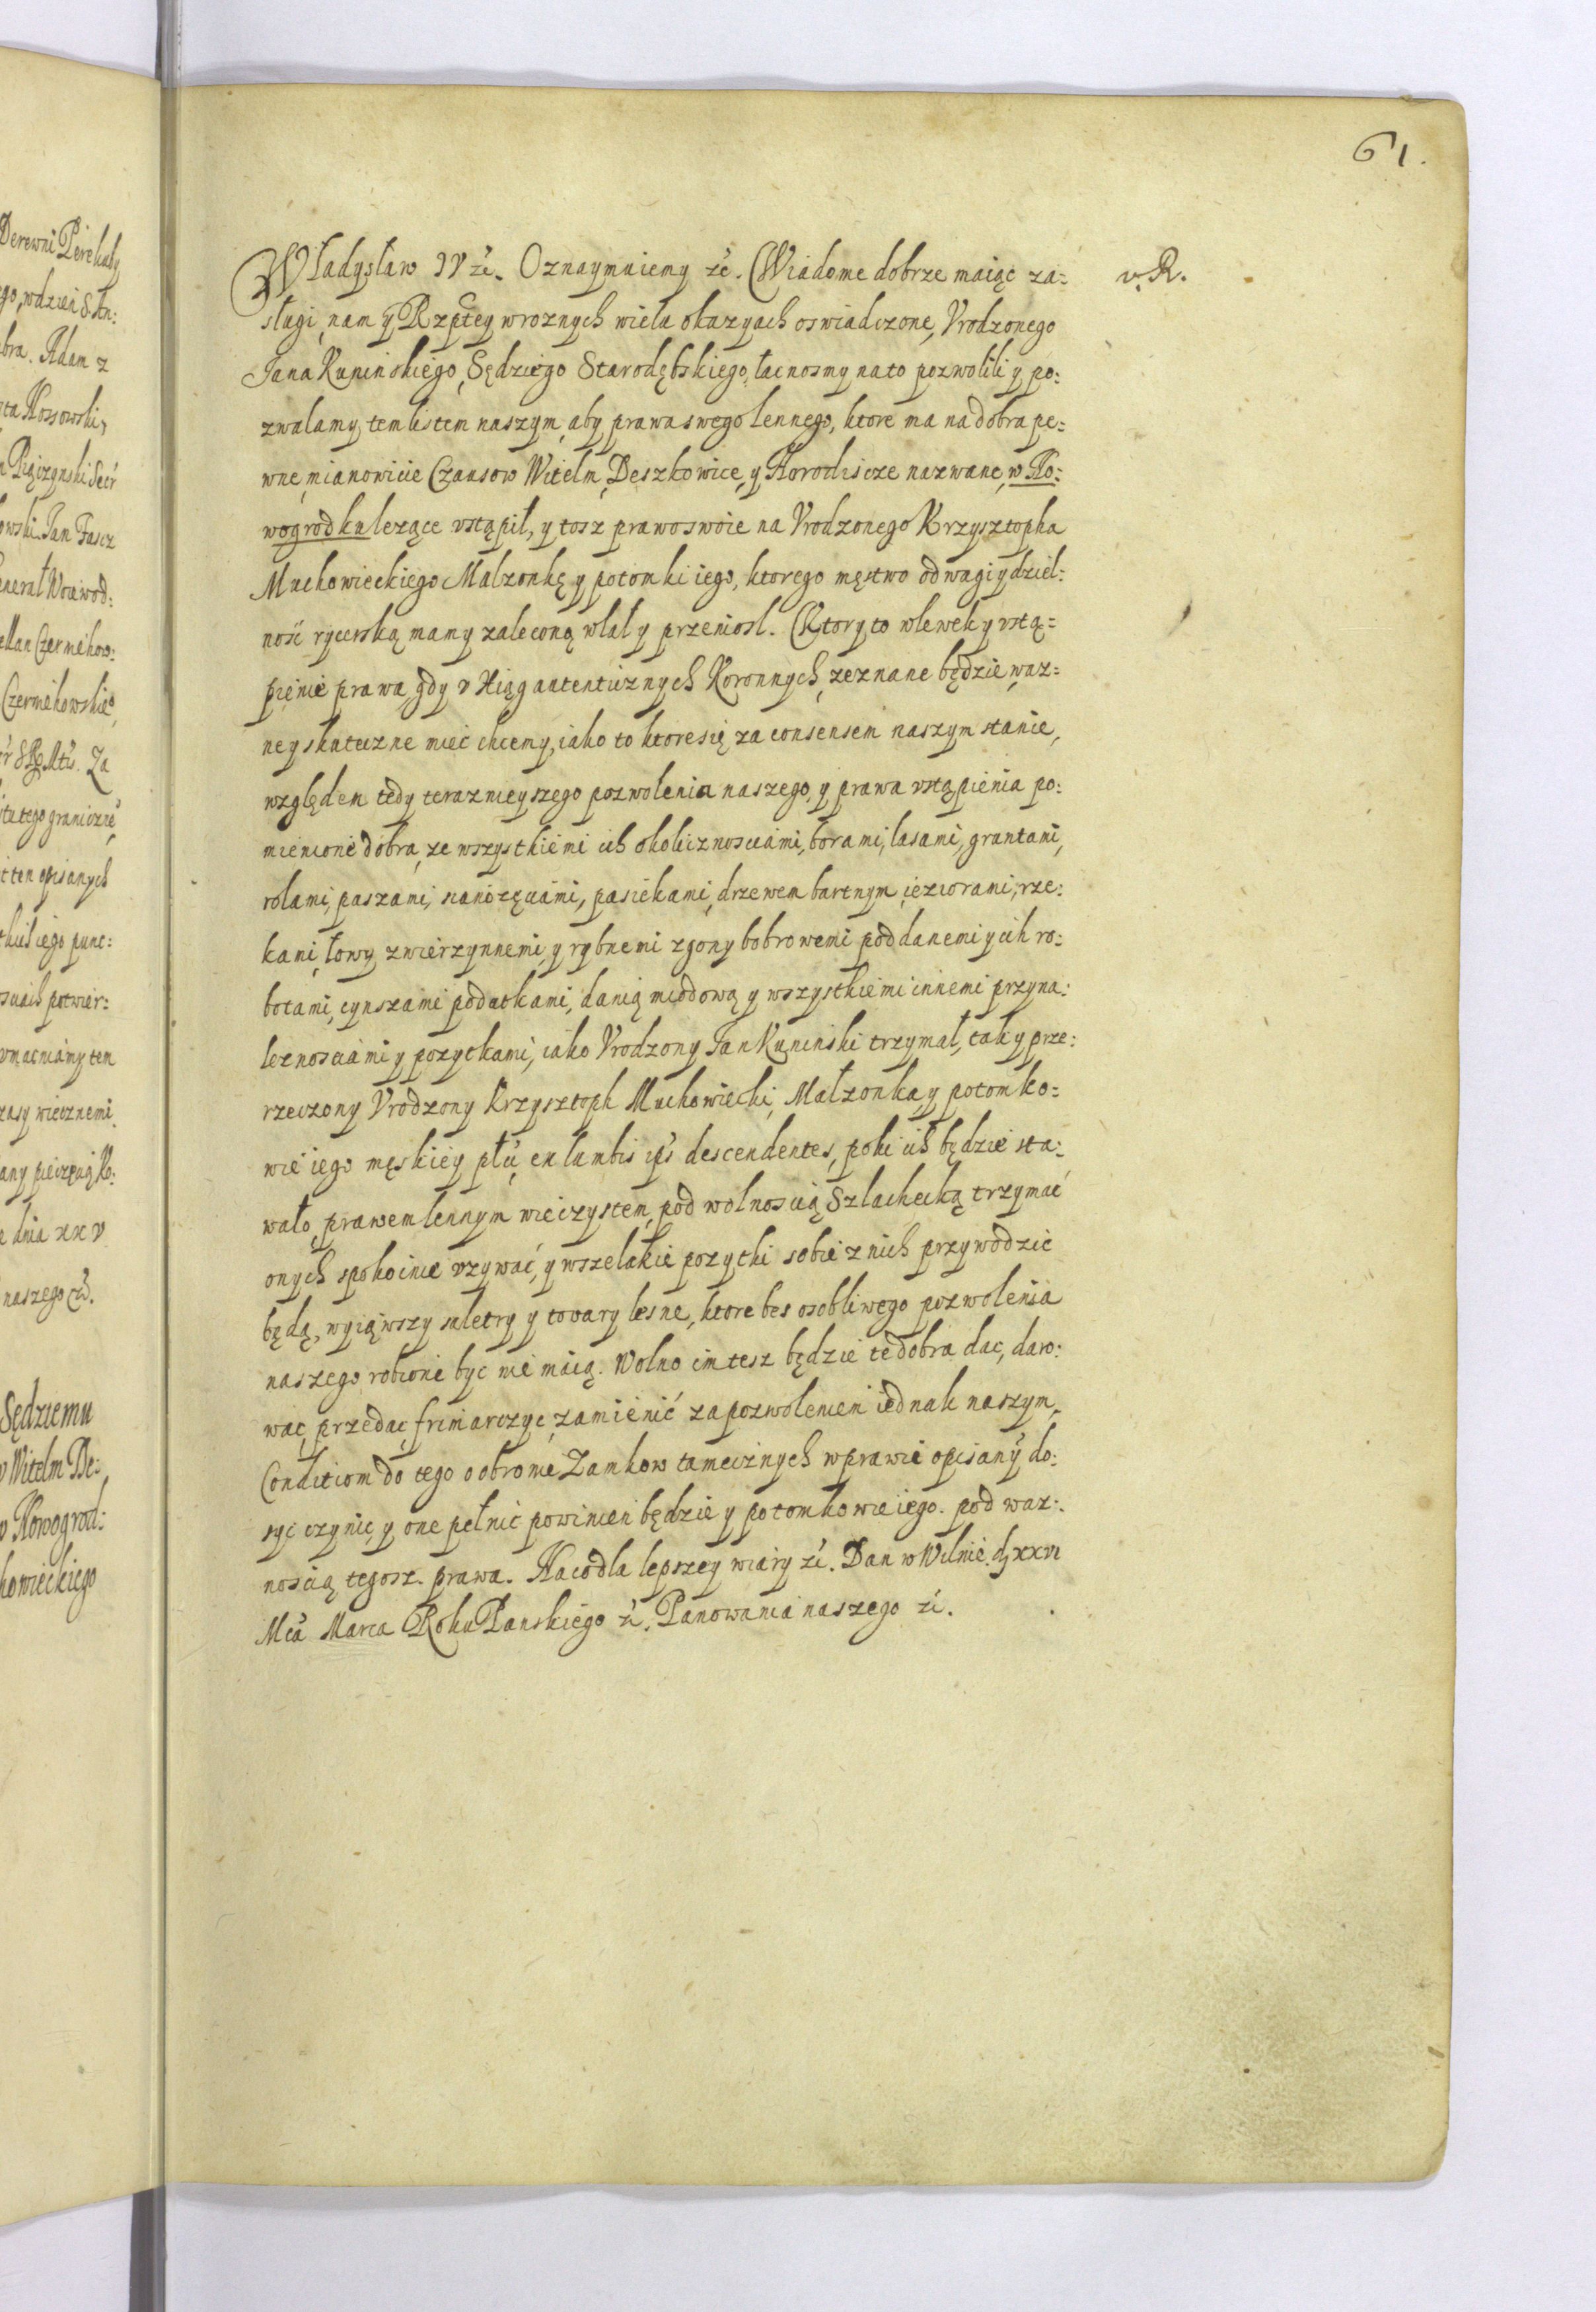 61.
Władysław IV &c. Oznaymuiemy &c. Wiadome dobrze maiąc za: v. R.
sługi, nam y Rzptey wroznych wielu okazyach oswiadczone, Vrodzonego
Jana Kuninskiego, Sędziego Starodębskiego, łacnosmy nato pozwolili y po:
zwalamy tem listem naszym, aby prawa swego lennego, ktore ma na dobra pe:
wne, mianowicie Czausow Witelm, Deszkowice, y Horodiscze nazwane, w No:
wogrodku lezące vstąpił, y tosz prawo swoie na Vrodzonego Krzysztopha
Muchowieckiego Malzonkę y potomki iego, ktorego męstwo odwagi y dziel:
ność rycerską mamy zaleconą wlał y przeniosl. Ktory to wlewek y vstą=
pienie prawa, gdy v Xiąg autentiznych Koronnych, zeznane będzie, waz=
ne y skuteczne mieć chcemy, iako to ktore się za consensem naszym stanie,
względem tedy terazmieyszego pozwolenia naszego, y prawa vstąpienia po:
mienione dobra, ze wszystkiemi ich okolicznosciami, borami, lasami, gruntami,
rolami, paszami, sianozęciami, pasiekami, drzewem bartnym, ieziorami, rze:
kami, łowy zwierzynnemi, y rybnemi zgony bobrowemi poddanemi y ich ro:
botami, cynszami podatkami, danią miodową y wszystkiemi innemi przyna:
leznosciami y pozytkami, iako Vrodzony Jan Kuninski trzymał, tak y prze:
rzeczony Vrodzony Krzysztoph Muchowiecki, Małzonka, y potomko:
wie iego męskiey płci, ex lumbis ips descendentes, poki ich będzie sta:
wało, prawem lennym wieczystem, pod wolnoscią Szlachecką trzymać
onych spokoinie vzywać, y wszelakie pozytki sobie z nich przywodzic
będą, wyiąwszy saletry y towary lesne, ktore bes osobliwego pozwolenia
naszego, robione byc nie maią. Wolno im tesz będzie te dobra dac, daro:
wac, przedac, frimarczyc, zamienić za pozwoleniem iednak naszym,
Conditiom do tego o obronie Zamkow tameiznych w prawie opisany do:
syc czynic, y one pełnic powinien będzie y potomkowie iego. pod waz:
noscią tegosz. prawa. Naco dla lepszey wiary &c. Dan w Wilnie. dz XXVI
Mca Marca Roku Panskiego &c. Panowania naszego &c.